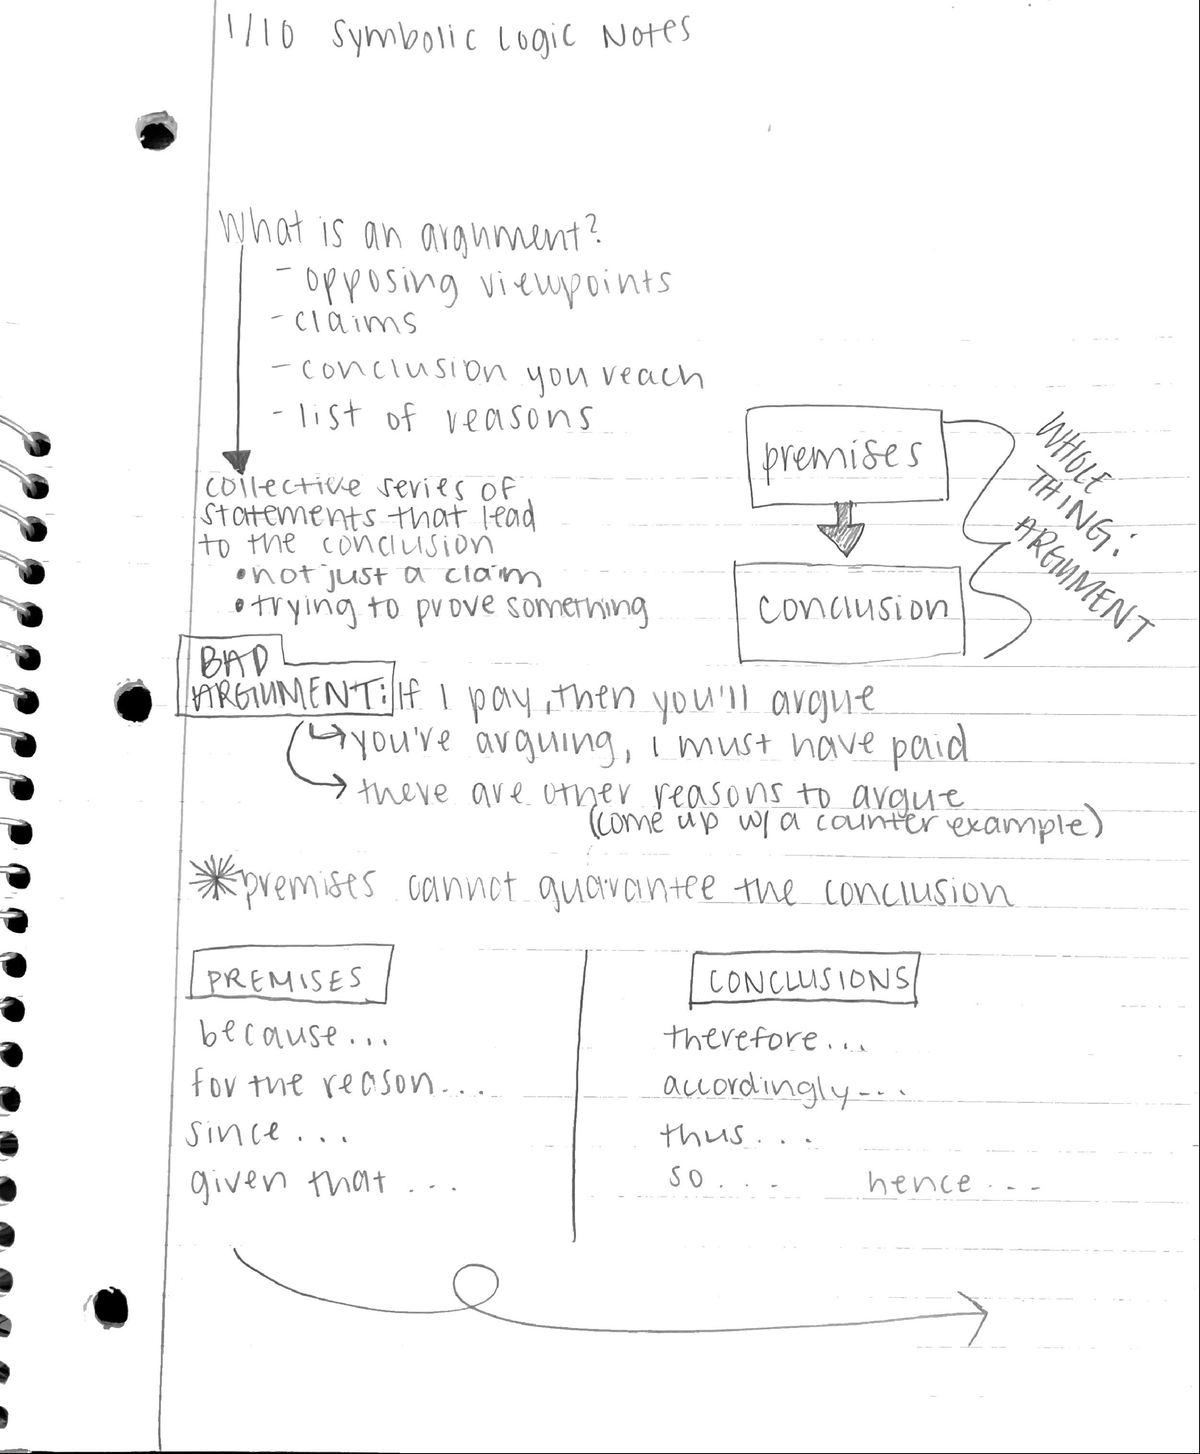 1/10 Symbolic Logic Notes
What is an argument?
- opposing viewpoints
- claims
- conclusion you reach
- list of reasons
collective series of
statements that lead
to the conclusion
• not just a claim
• trying to prove something
premises
conclusion
WHOLE
THING:
ARGUMENT
BAD
ARGUMENT: If I pay, then you'll argue
you're arguing, I must have paid
there are other reasons to argue
(come up w/ a counter example)
premises cannot guarantee the conclusion
PREMISES
because...
for the reason....
since...
given that ...
CONCLUSIONS
therefore...
accordingly...
thus....
so.... hence....